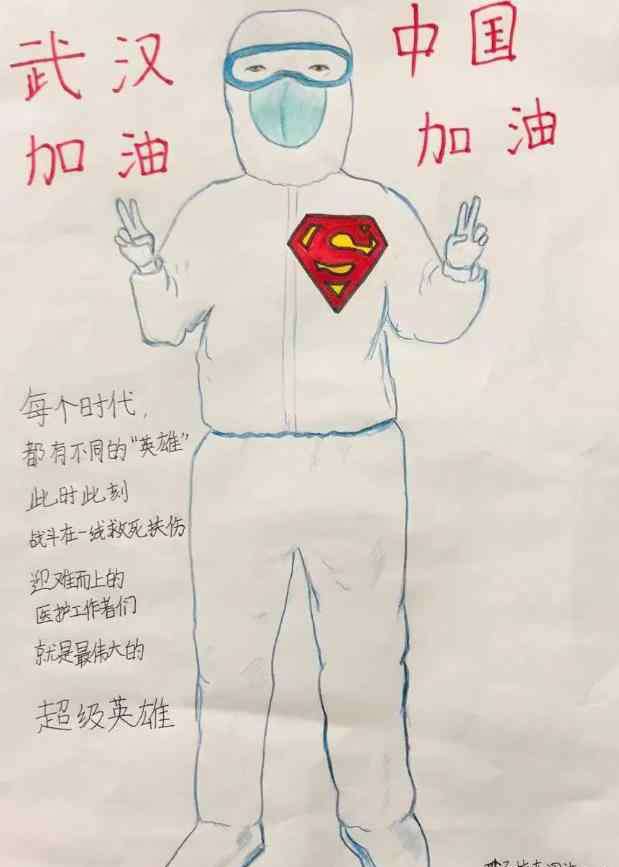 武汉
加油
中国
加油
S
每个时代，
都有不同的“英雄”
此时此刻
战斗在一线救死扶伤
迎难而上的
医护工作者们
就是最伟大的
超级英雄